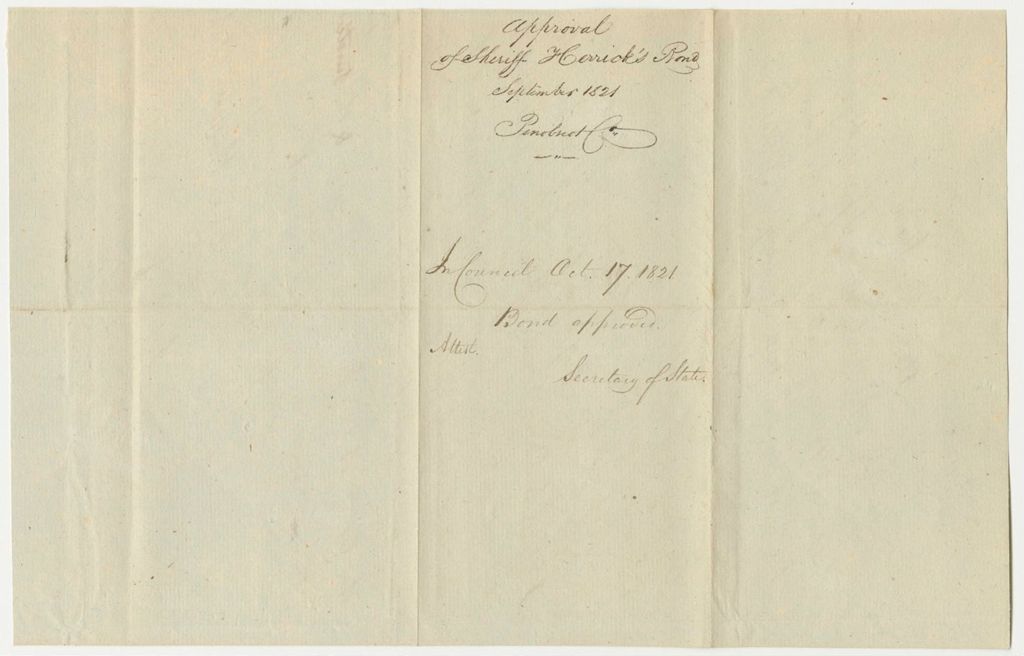 Approval
of Sheriff Herrick's Bond
September 1821
Penobscot Co.
In Council Oct. 17. 1821
Bond approved.
Attest.
Secretary of State.